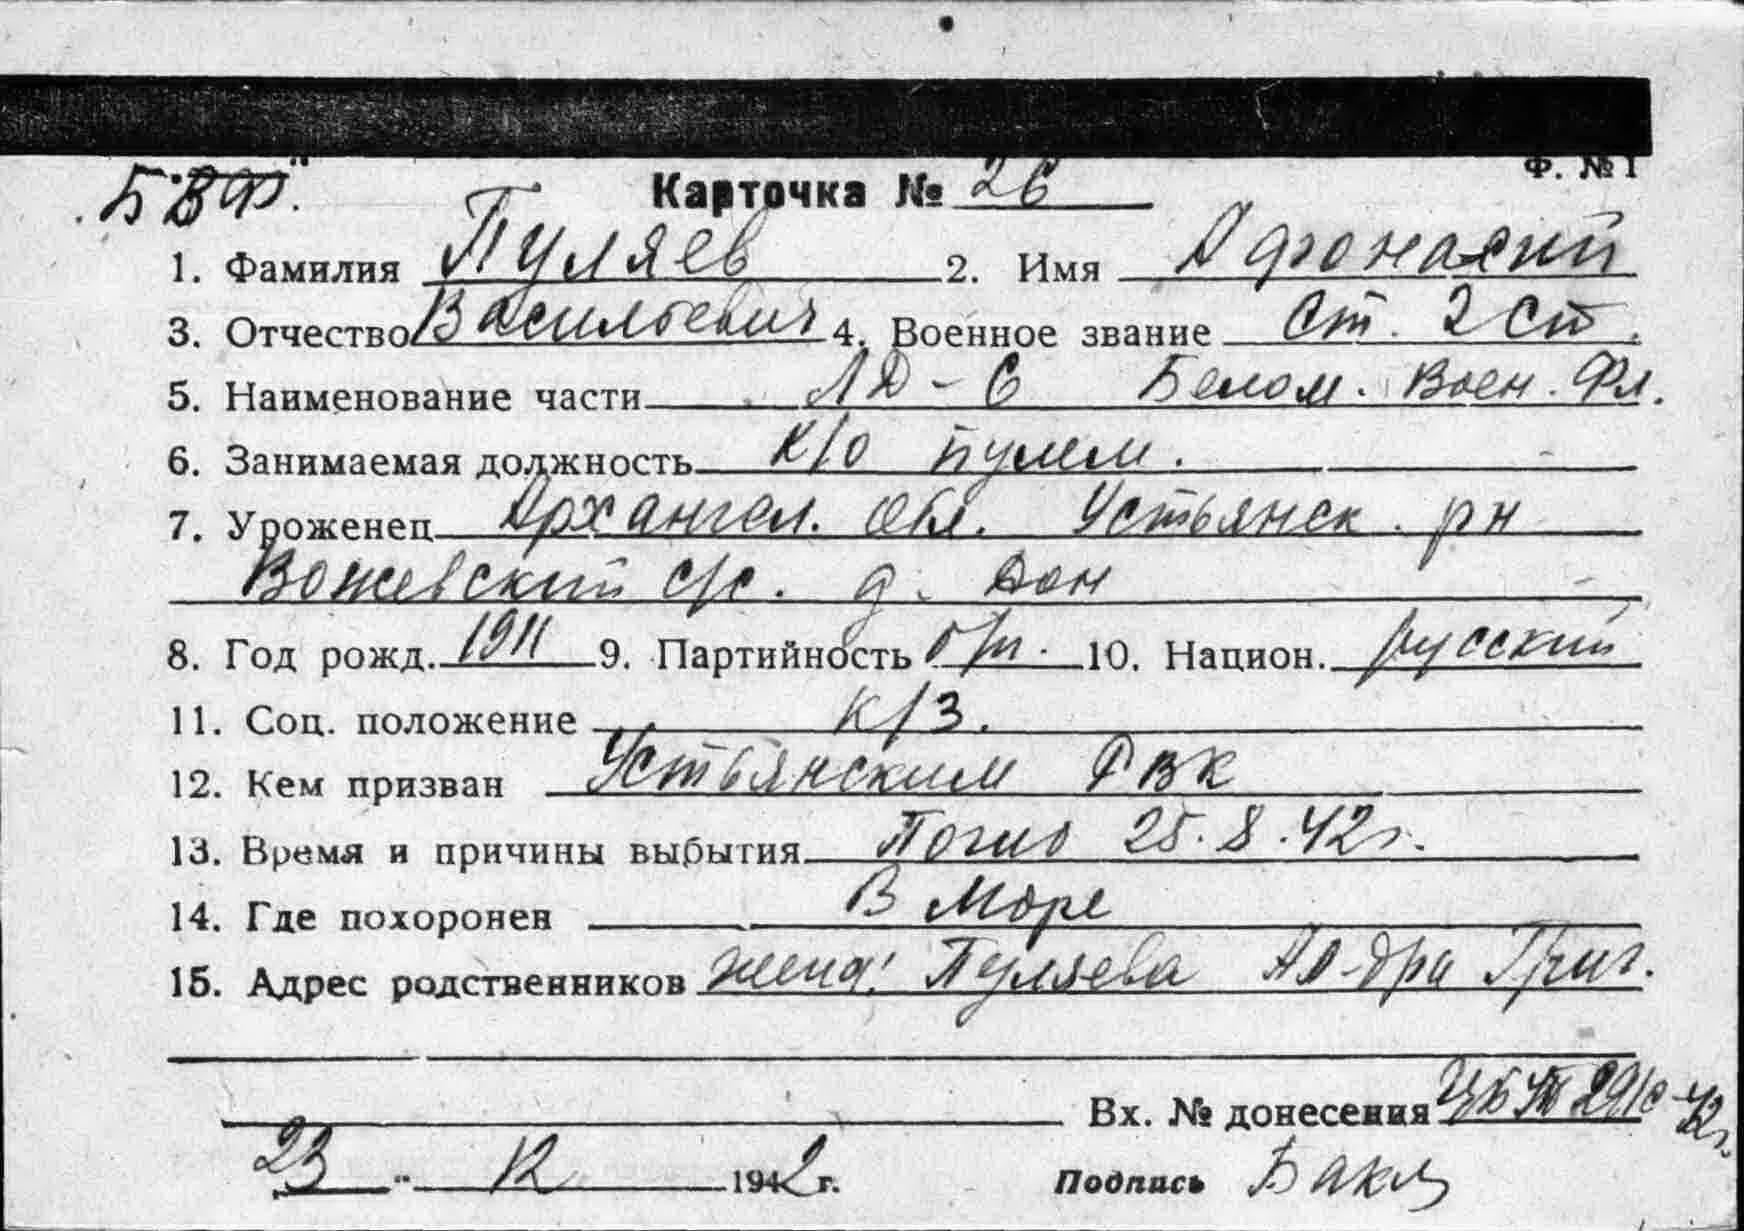 Ф. № 1
"БВФ". Карточка № 26
1. Фамилия Пуляев 2. Имя Афонасий
3. Отчество Васильевич 4. Военное звание Ст. 2 ст.
5. Наименование части ЛД-6 Белом. Воен. Фл.
6. Занимаемая должность к/о пулем.
7. Уроженец Архангел. обл. Устьянск. рн
Вожевский с/с. д. Дон
8. Год рожд. 1911 9. Партийность б/п. 10. Национ. русский
11. Соц. положение к/з.
12. Кем призван Устьянским РВК
13. Время и причины выбытия Погиб 25.8.42г.
14. Где похоронен В море
15. Адрес родственников жена: Пуляева Ал-дра Григ.
Вх. № донесения 42г.
23 " 12 1942г. Подпись